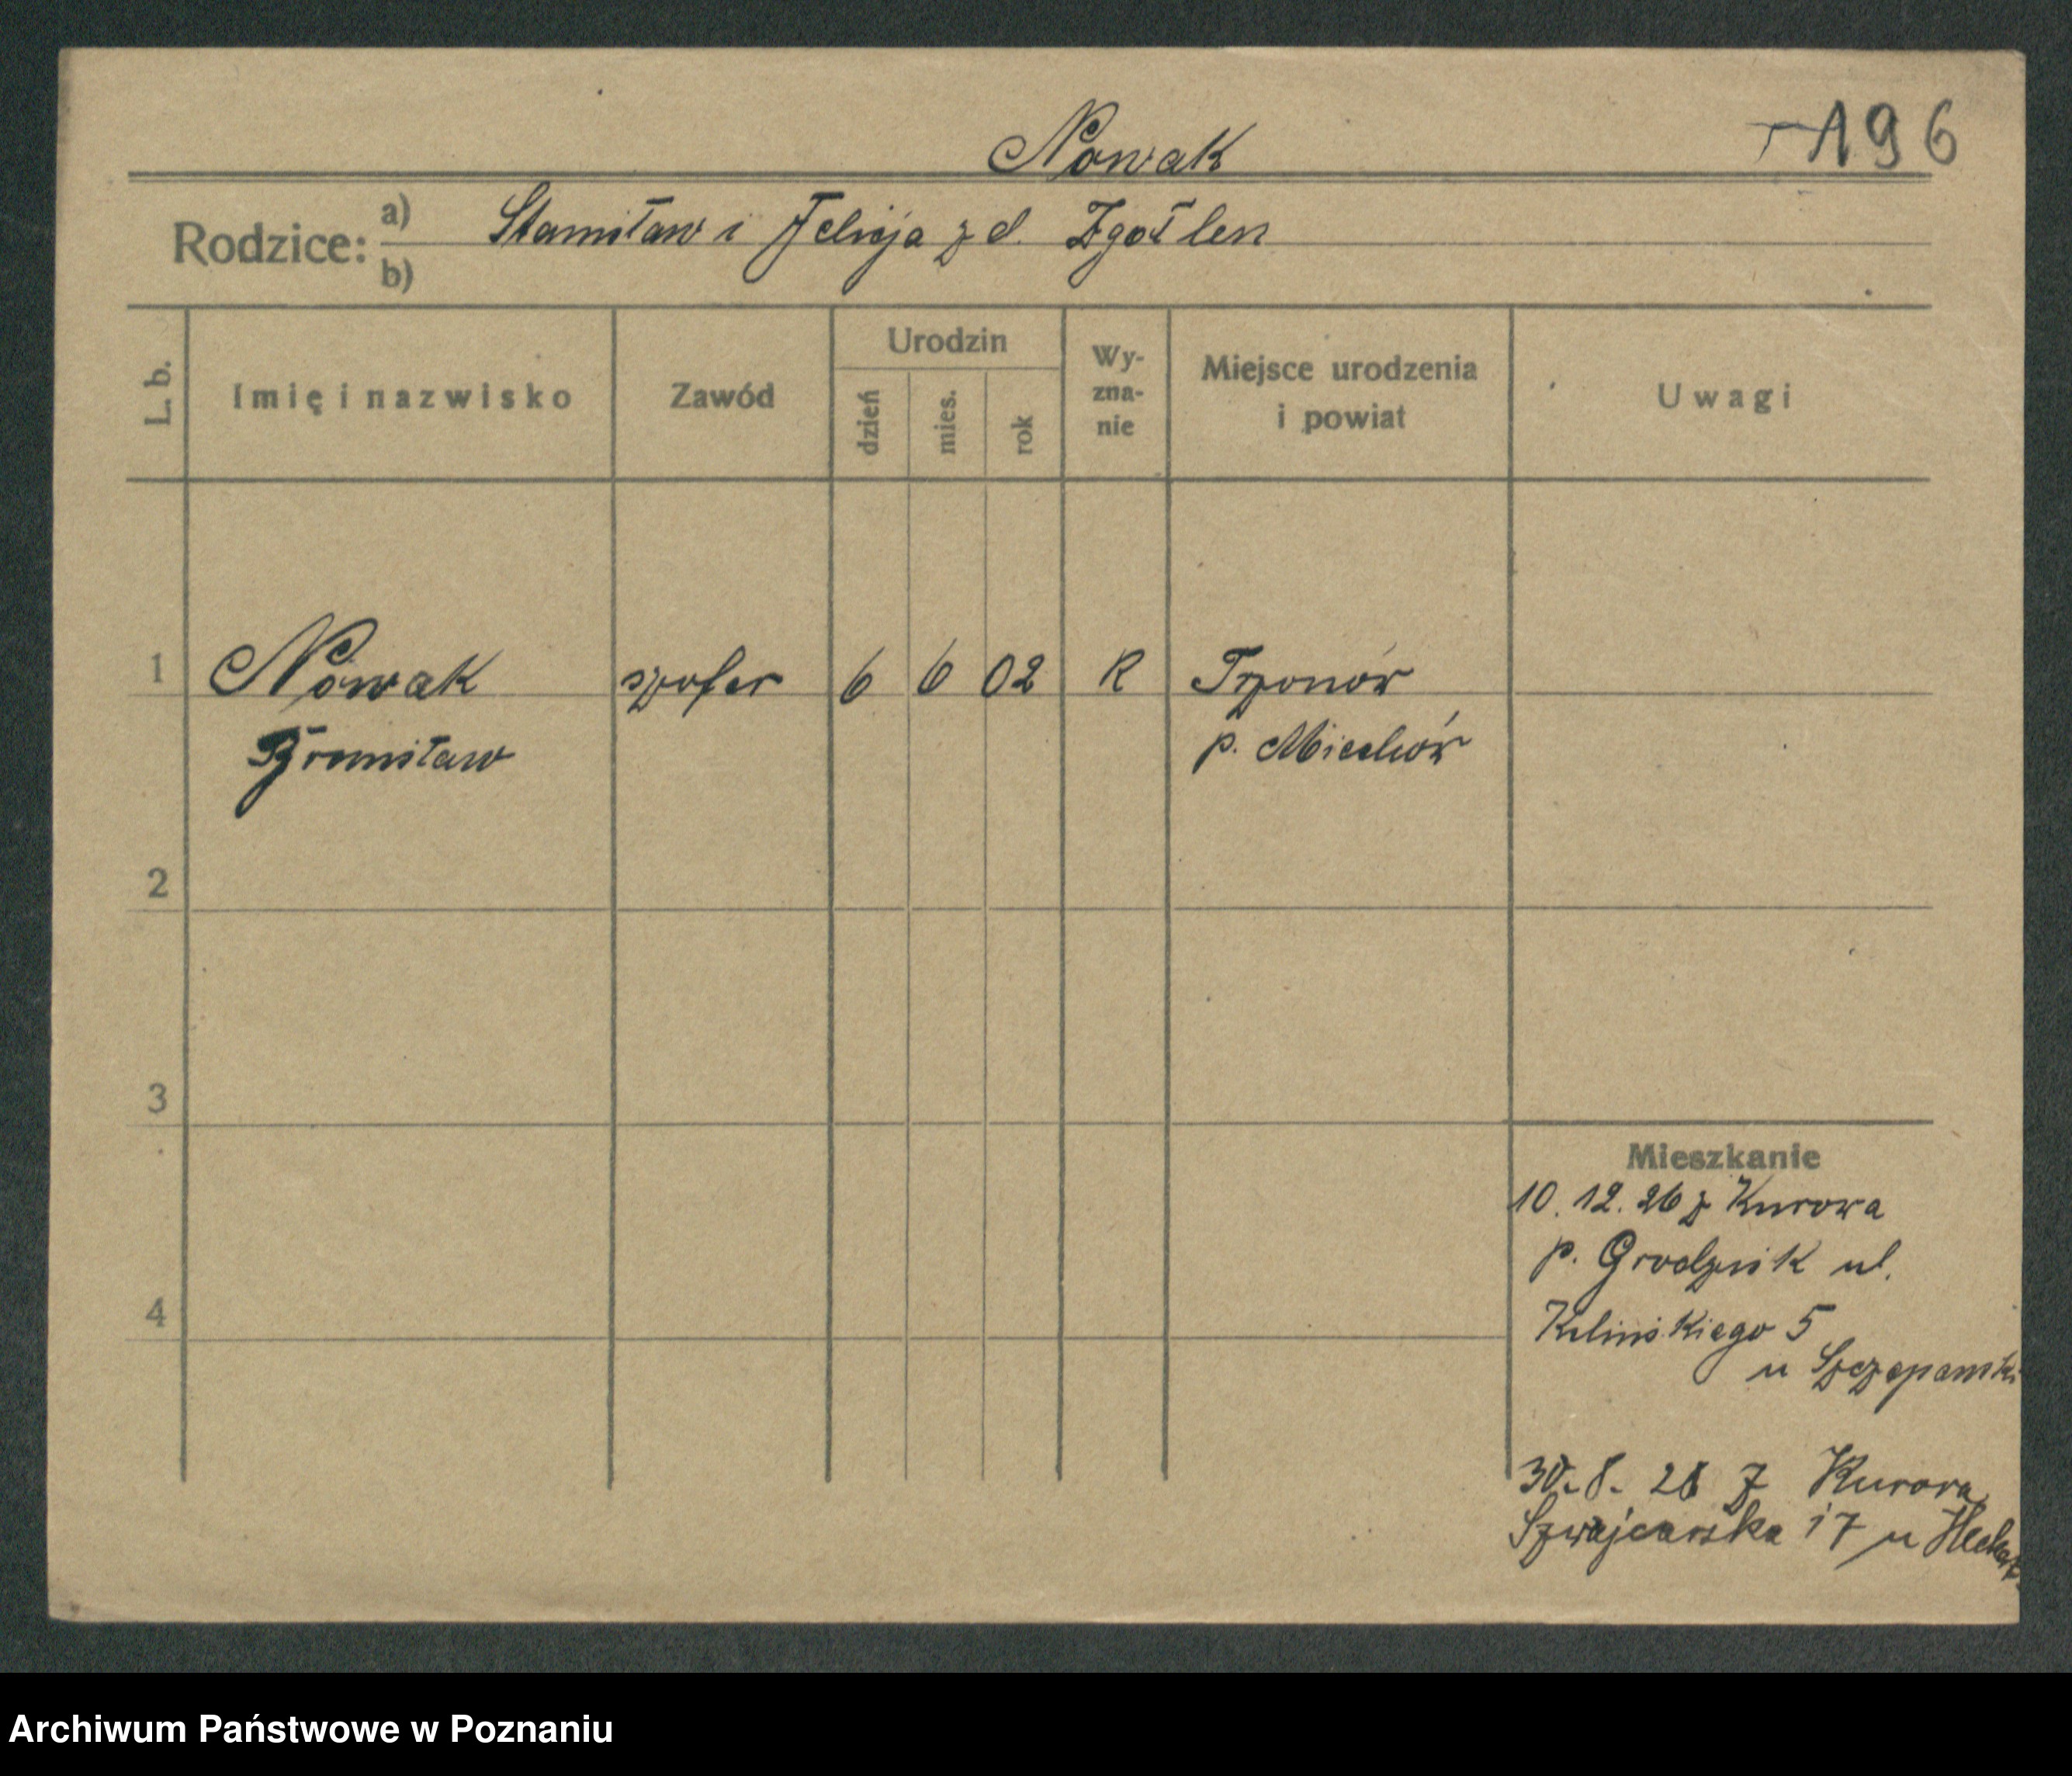 Nowak
196
Rodzice: a) Stanisław i Felicja z d. Zgołlen
b)
L. b.
Imię i nazwisko
Zawód
Urodzin
dzień
mies.
rok
Wy-
zna-
nie
Miejsce urodzenia
i powiat
Uwagi
1 Nowak szofer 6 6 02 R Trzonów
Bronisław p. Miechów
2
3
4
Mieszkanie
10. 12. 26 z Kurowa
p. Grodzisk ul.
Kilińskiego 5
u Szczepanski
30. 8. 28 z Kurowa
Szwajcarska 17 u
Archiwum Państwowe w Poznaniu